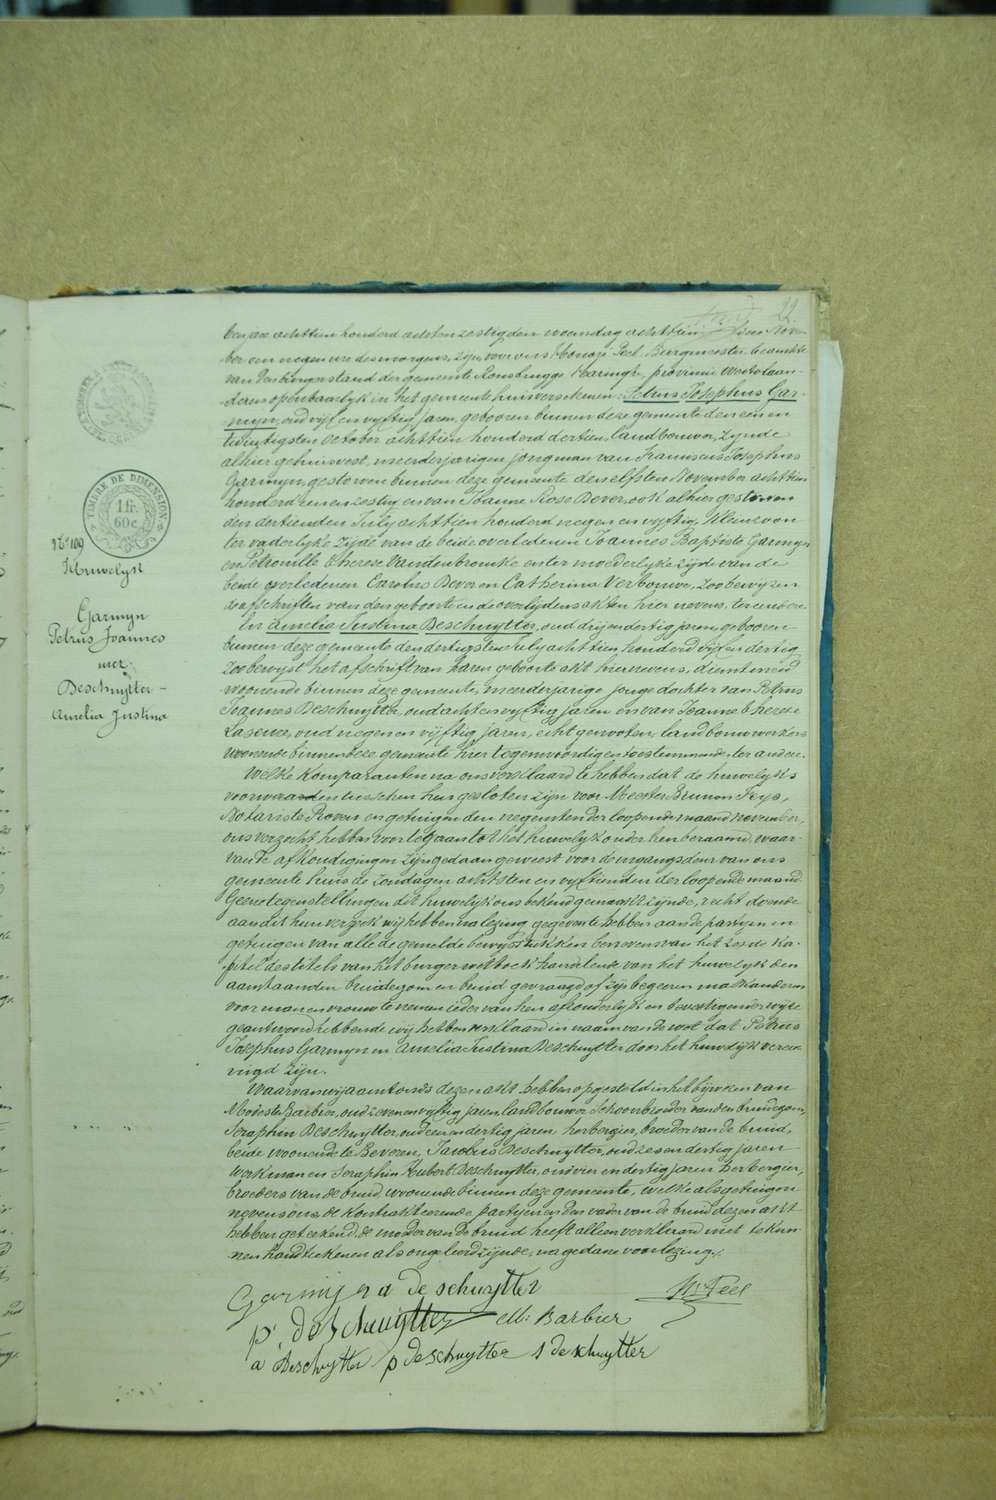 22.
ten jare achttien honderd acht en zestig den woensdag achttien November
ber een negen ure des morgens, zyn voor ons Honoré Peel, Burgmeester beambte
van den burgerstand der gemeente Ronsbrugge Haringhe, provincie Westvlaan-
deren openbaarlyk in het gemeente huis verschenen: Petrus Josephus Gar-
myn, oud vyf en vyftig jaren, gebooren binnen deze gemeente den een en
twintigsten October achttien honderd dertien, landbouwer, zynde
alhier gehuisvest, meerderjarigen jongman van Franciscus Josephus
Garmyn, gestorven binnen deze gemeente den elfsten November achttien
honderd een en zestig en van Joanne Rose Dever, ook alhier gestorven
den dertienden July achttien honderd negen en vyftig, kleinzoon
ter vaderlyke zyde van de beide overledenen Joannes Baptiste Garmyn
en Petronille Therese Vandenbroucke en ter moederlyke zyde van de
beide overledenen Carolus Dever en Catherina Verbouwe, zoo bewyzen
de afschriften van den geboorte en de overlydens akten hier nevens, ter eender
en Amelia Justina Deschuytter, oud dry en dertig jaren, gebooren
binnen deze gemeente den dertigsten July achttien honderd vyf en dertig
zoo bewyst het afschrift van haren geboorte akt hiernevens, dienstmeid
woonende binnen deze gemeente, meerderjarige jonge dochter van Petrus
Joannes Deschuytter, oud acht en vyftig jaren en van Joanne Therese
oud negen en vyftig jaren, echtgenooten, landbouwwerkers
woonende binnen deze gemeente hier tegenwoordig en toestemmende, ter andere.
Welke komparanten na ons verklaard te hebben dat de huwelyks
voorwaarden tusschen hun gesloten zyn voor Meester Brunon Feys,
Notaris te Rovere en getuigen den negensten der loopende maand november,
ons verzocht hebben voor te gaan tot het huwelyk onder hen beraamd, waar-
van de afkondigingen zyn gedaan geweest voor de ingangsdeur van ons
gemeente huis de zondagen achtsten en vyftienden der loopende maand.
Geene tegenstellingen dit huwelyk ons bekend gemaakt zynde, recht doende
aan dit hun verzoek wy hebben na lezing gegeven te hebben aan de partyen en
getuigen van alle de gemelde bewysstukken benevens van het zesde ka-
pitel des titels van het burger wetboek handelende van het huwelyk den
aanstaanden bruidegom en bruid gevraagd of zy begeeren malkanderen
voor man en vrouw te nemen ieder van hen afzonderlyk en bevestigender wyze
geantwoord hebbende wy hebben verklaard in naam van de wet dat Petrus
Josephus Garmyn en Amelia Justina Deschuytter door het huwelyk vereee-
nigd zyn.
Waarvan wy aanstonds dezen akt hebben opgesteld in het bywezen van
Modeste Barbier, oud zeven en vyftig jaren, landbouwer, schoonbroeder van den bruidegom,
Seraphin Deschuytter, oud een en dertig jaren herbergier, broeder van de bruid,
beide woonende te Beveren, Jacobus Deschuytter, oud zes en dertig jaren
werkman en Seraphin Hubert Deschuytter, oud vier en dertig jaren herbergier,
broeders van de bruid, woonende binnen deze gemeente, welke als getuigen
nevens ons, de kontrakteerende partyen en den vader van de bruid dezen akt
hebben geteekend, de moeder van de bruid heeft alleen verklaard niet te kun-
nen handteekenen als ongeleerd zynde, na gedane voorlezing.
TIMBRE DE DIMENSION
1 fr.
60c.
N° 109
Huwelyk
Garmyn
Petrus Joannes
met
Deschuytter
Amelia Justina
Garmijn a de schuytter Hre Peel
p: de schuytter M: Barbier
a Deschuytter p de schuytter s de schuytter